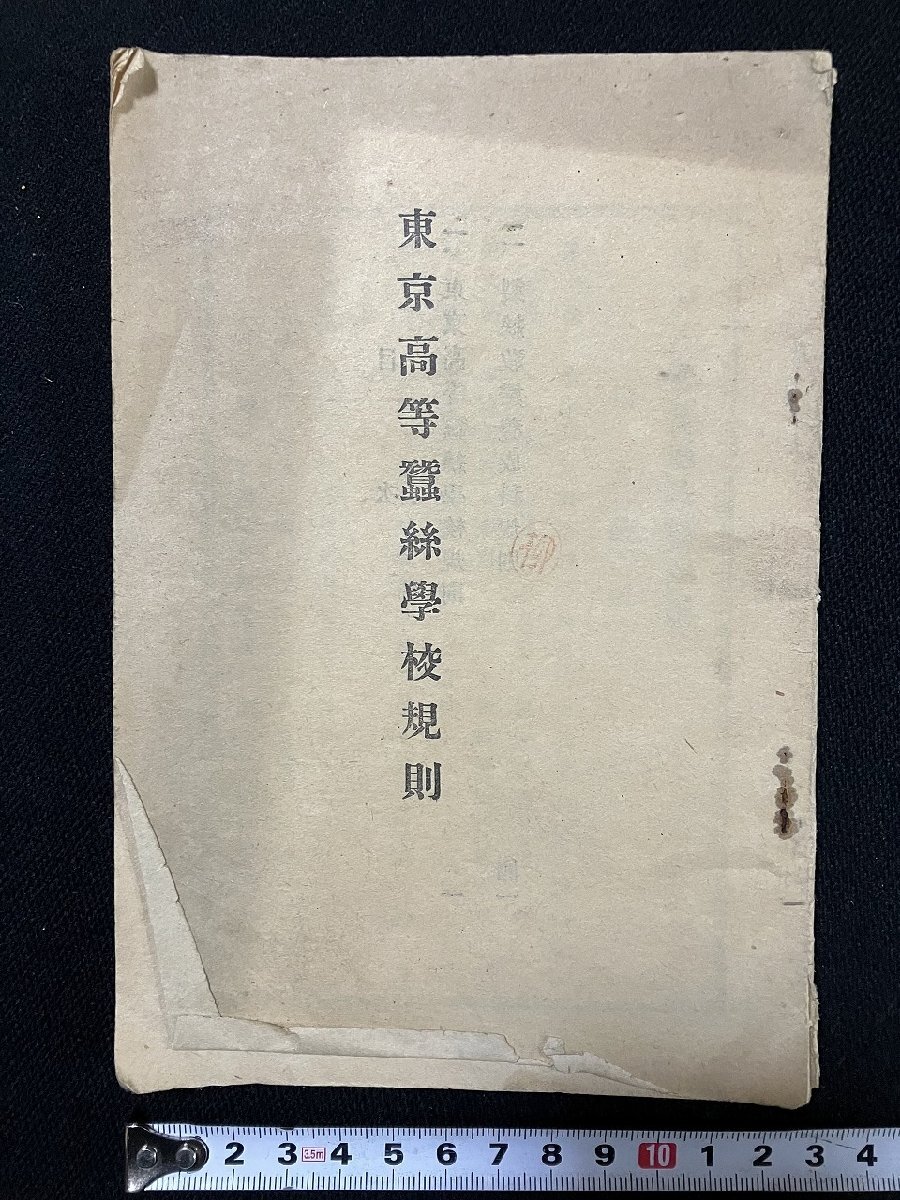 東京高等蠶絲學校規則
2 3 3.5m 4 5 6 7 8 9 10 1 2 3 4